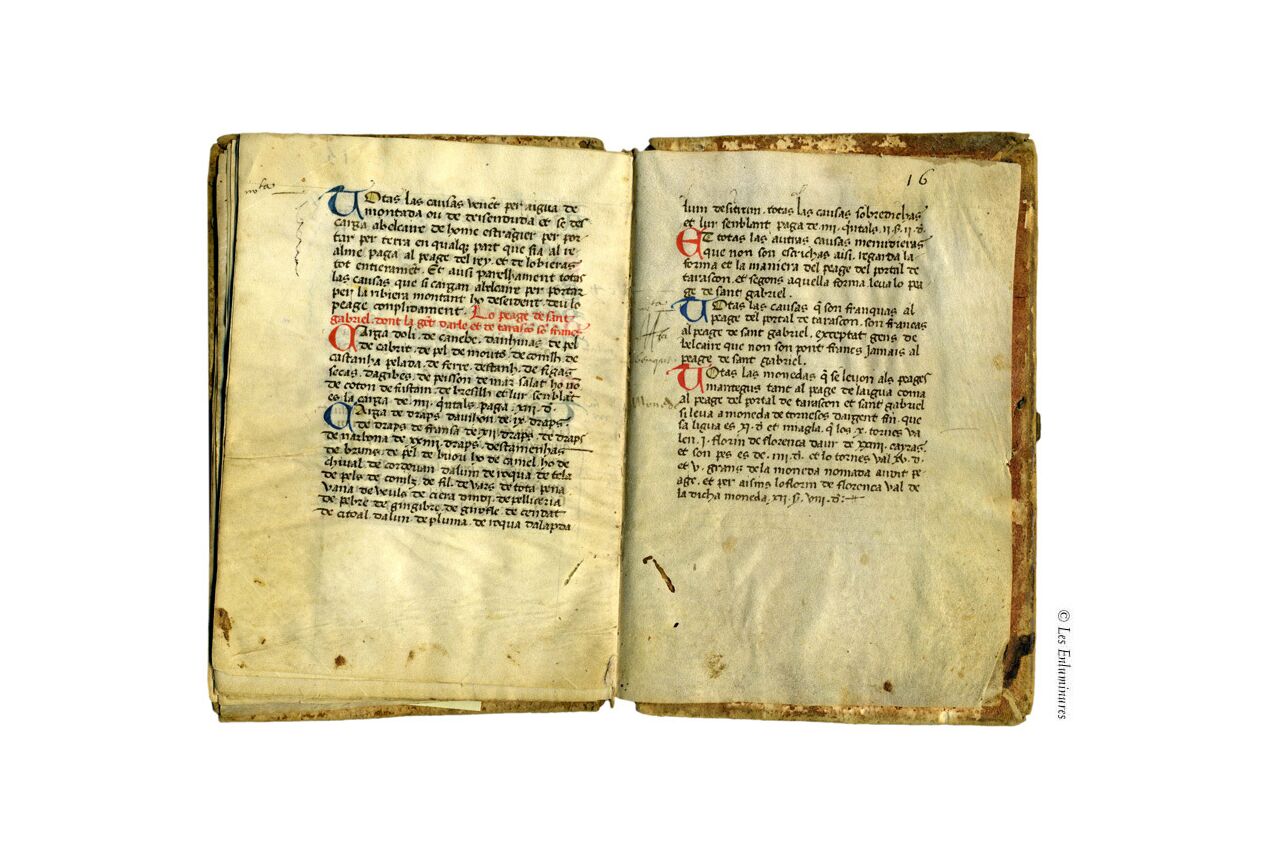 nota
TOtas las causas venent per aigua de
montada ou de deisenduda et se des
carga abelcaire de home estragier per por
tar per terra en qualque part que sia al re
alme paga al peage del rey. et de lobieras
tot entieramet. Et ausi parelhament totas
las causas que si cargan abelcaire per portar
per la ribiera montant ho deisendent. deu lo
peage complidament. Lo peage de sant
gabriel. dont la get darle et de tarasco so franq
CAirga doli. de canebe. danhinas. de pel
de cabrit. de pel de mouto. de conilh. de
castanha pelada. de ferre. destanh. de figas
secas. de peisson de mar salat ho no
de coton. de fustani. de bresilh et lur senblat
es la carga de .iiii. quitals. paga .xii. d.
CAirga de draps davihon. de ix. draps.
de draps de fransa de .xii. draps. de draps
de narbona de xxiiii. draps. destamenhas
de bruns. de pel de buou ho de camel. ho de
chival. de cordouan. dalum de roqua. de tela
de pels de conilz. de fil. de vars. de tota pena
vana. de veuls. de ciera. dindi. de pelliceria
de pebre. de gingibre. de girofle. de cendat
de citoal. dalun. de pluma. de roqua dalapda
16
lum totas las causas sobredichas
et lur senblant paga de .iiii. quitals. ii. s. ii. d.
ET totas las autras causas menudieras
que non son escrichas aisi. regarda la
forma et la maniera del peage del portal de
tarascon. et segons aquella forma leva lo pea
ge de sant gabriel.
TOtas las causas q son franquas al
peage del portal de tarascon. son francas
al peage de sant gabriel. exceptat gens de
belcaire que non son pont francs jamais al
peage de sant gabriel.
TOtas las monedas q se levon als peages
mantegus tant al peage de laigua coma
al peage del portal de tarascon et sant gabriel
si leva a moneda de tornesos dargent fin. que
sa ligua es xi. d. et miagla. q los .x. tornes va
len .i. florin de florenca daur de xxiiii. cayras.
et son pes es de .iii. d. et lo tornes val xv. d.
et .v. grans de la moneda nomada avdit pe
age. et per aisins lo florin de florenca val de
la dicha moneda. xii. s. viii. d.
© Les Enluminures